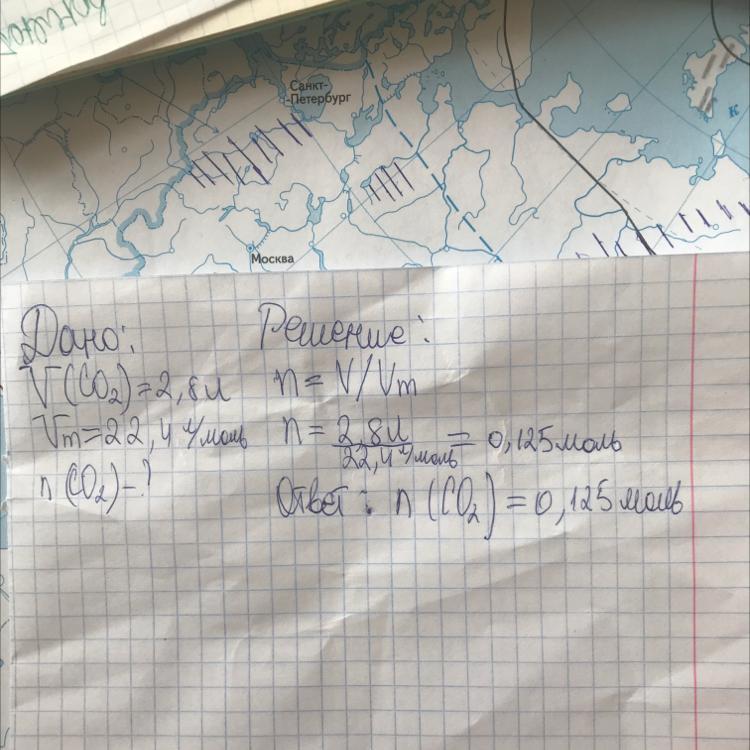 Санкт-
-Петербург
К
Москва
Дано:
V(CO₂)=2,8л
Vm=22,4 л/моль
n(CO₂)-?
Решение:
n=V/Vm
n= 2,8л / 22,4 л/моль = 0,125 моль
Ответ: n(CO₂)=0,125 моль